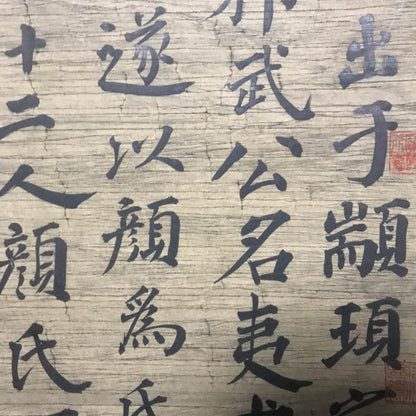 出于顓頊
武公名夷
遂以顏為氏
十二人顏氏